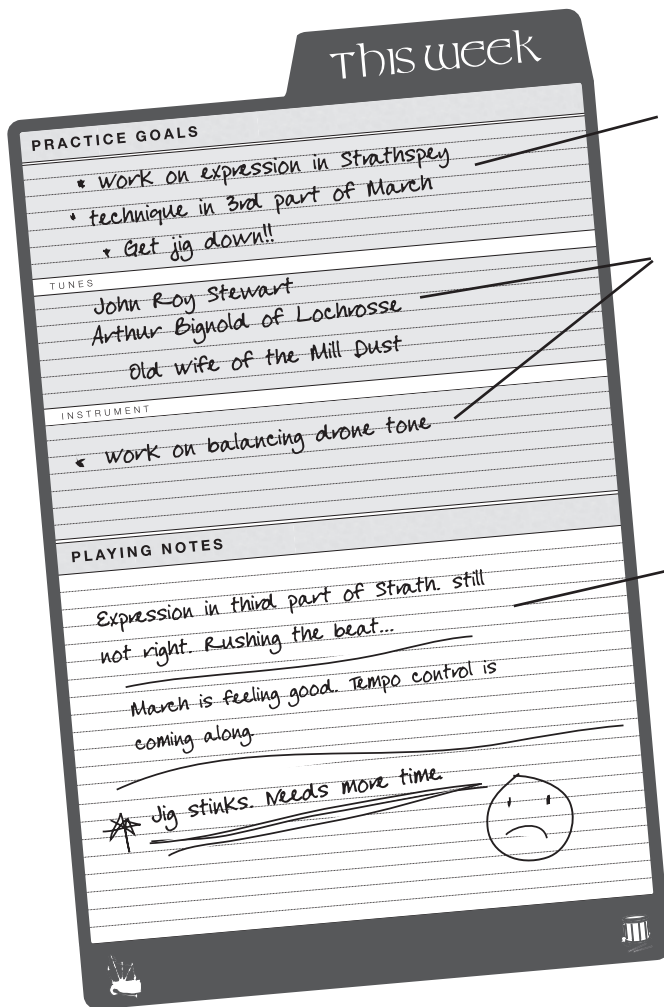 This week
PRACTICE GOALS
* Work on expression in Strathspey
* technique in 3rd part of March
* Get jig down!!
TUNES
John Roy Stewart
Arthur Bignold of Lochrosse
Old wife of the Mill Dust
INSTRUMENT
* Work on balancing drone tone
PLAYING NOTES
Expression in third part of Strath. still
not right. Rushing the beat...
March is feeling good. Tempo control is
coming along.
Jig stinks. Needs more time.